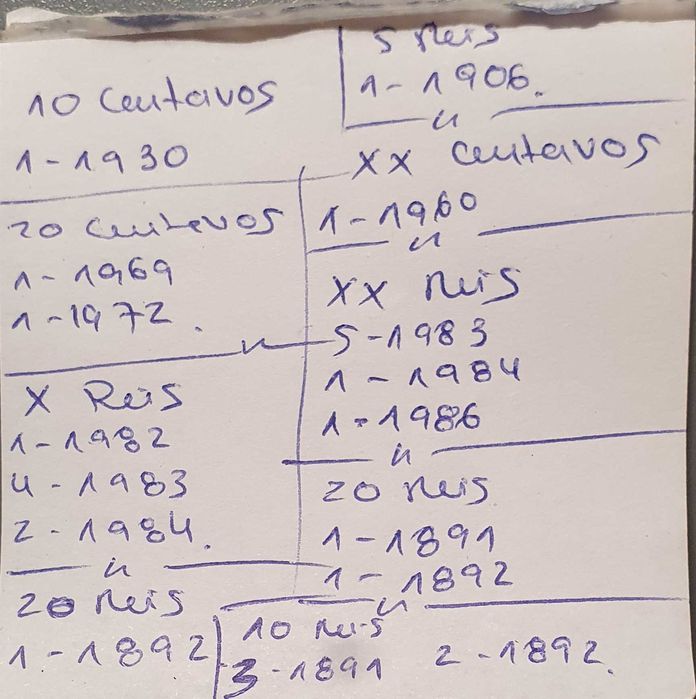 10 Centavos
1-1930
20 Centavos
1-1969
1-1972.
X Reis
1-1982
4-1983
2-1984.
20 Reis
1-1892
5 Reis
1-1906.
XX Centavos
1-1960
XX Reis
5-1983
1-1984
1-1986
20 Reis
1-1891
1-1892
10 Reis
3-1891 2-1892.